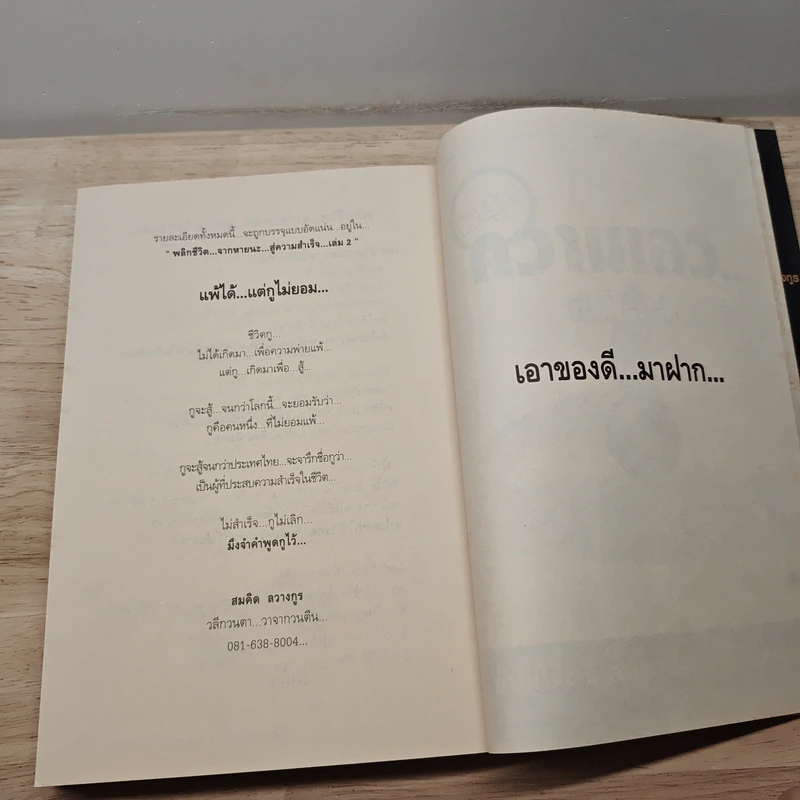 รายละเอียดทั้งหมดนี้...จะถูกบรรจุแบบอัดแน่น...อยู่ใน...
" พลิกชีวิต...จากหายนะ...สู่ความสำเร็จ...เล่ม 2 "
แพ้ได้...แต่กูไม่ยอม...
ชีวิตกู...
ไม่ได้เกิดมา...เพื่อความพ่ายแพ้...
แต่กู...เกิดมาเพื่อ...สู้...
กูจะสู้...จนกว่าโลกนี้...จะยอมรับว่า...
กูคือคนหนึ่ง...ที่ไม่ยอมแพ้...
กูจะสู้จนกว่าประเทศไทย...จะจารึกชื่อกูว่า...
เป็นผู้ที่ประสบความสำเร็จในชีวิต...
ไม่สำเร็จ...กูไม่เลิก...
มึงจำคำพูดกูไว้...
สมคิด ลวางกูร
วลีกวนตา...วาจากวนตีน...
081-638-8004...
เอาของดี...มาฝาก...